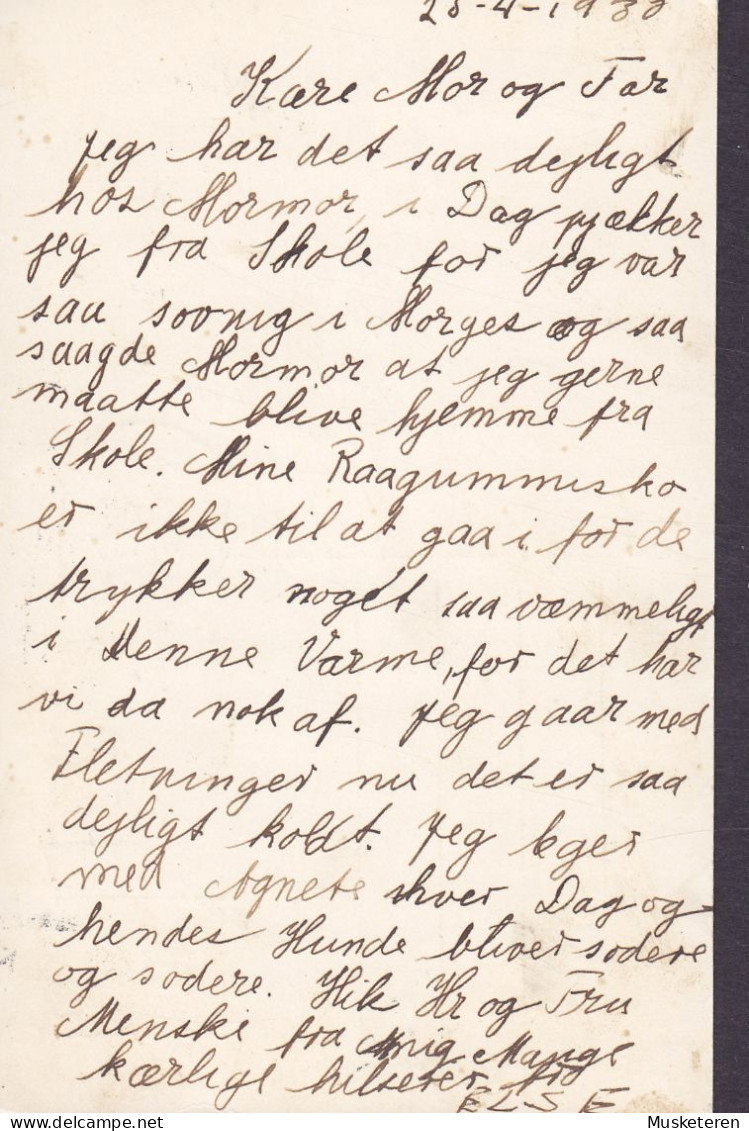 28-4-1933
Kære Mor og Far
Jeg har det saa dejligt
hos Mormor, i Dag pjækker
jeg fra Skole for jeg var
saa sovnig i Morges og saa
saagde Mormor at jeg gerne
maatte blive hjemme fra
Skole. Mine Raagummisko
er ikke til at gaa i for de
trykker noget saa væmmeligt
i Denne Varme, for det har
vi da nok af. Jeg gaar med
Fletninger nu det er saa
dejligt koldt. Jeg leger
med Agnete hver Dag og
hendes Hunde bliver sodere
og sodere. Hik Hr og Fru
Menske fra mig Mange
kærlige hilsener fra
ELSE
delcampe.net
Musketeren